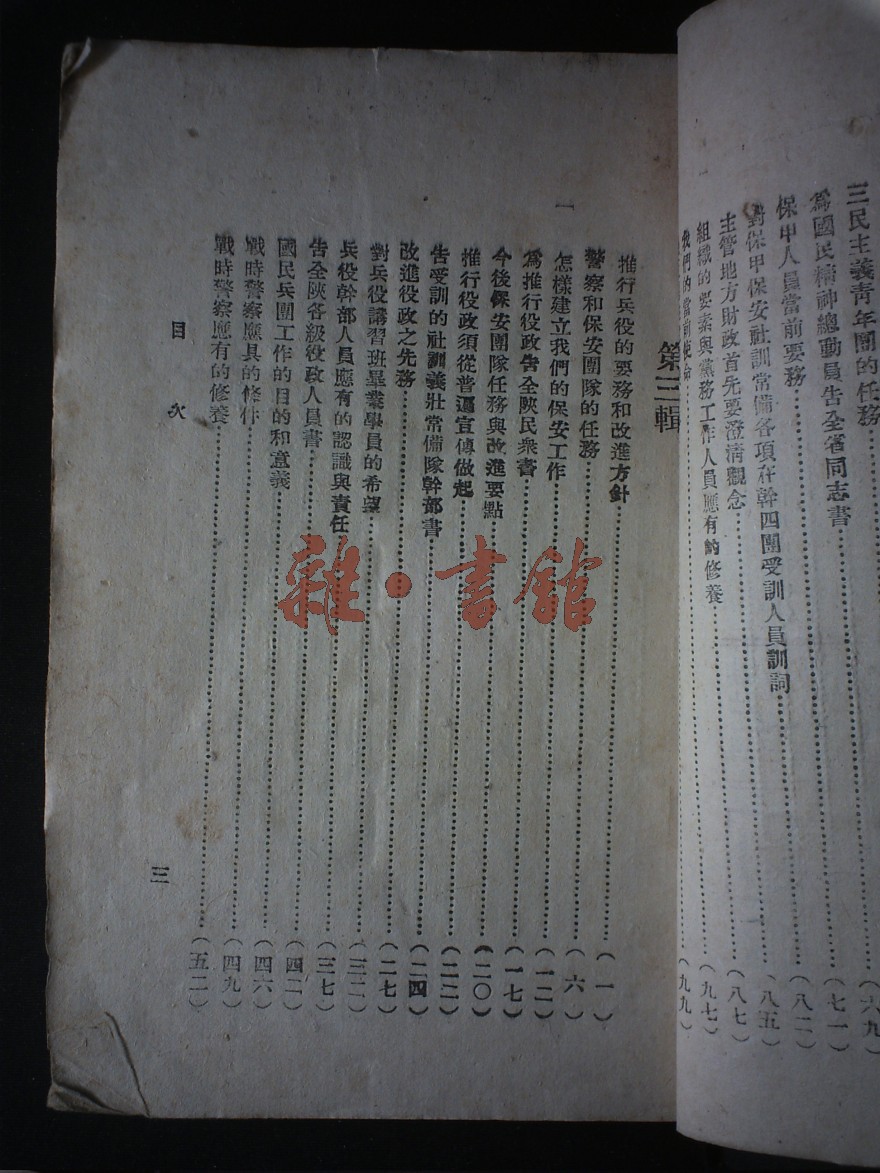 三民主義青年團的任務……(六九)
為國民精神總動員告全省同志書……(七一)
保甲人員當前要務……(八二)
對保甲保安社訓常備各項在幹四團受訓人員訓詞……(八五)
主管地方財政首先要澄清觀念……(八七)
組織的要素與黨務工作人員應有的修養……(九七)
我們的當前使命……(九九)
第三輯
推行兵役的要務和改進方針……(一)
警察和保安團隊的任務……(六)
怎樣建立我們的保安工作……(一二)
為推行役政告全陝民衆書……(一七)
今後保安團隊任務與改進要點……(二〇)
推行役政須從普遍宣傳做起……(二二)
告受訓的社訓義壯常備隊幹部書……(二四)
改進役政之先務……(二七)
對兵役講習班畢業學員的希望……(三二)
兵役幹部人員應有的認識與責任……(三七)
告全陝各級役政人員書……(四二)
國民兵團工作的目的和意義……(四六)
戰時警察應具的條件……(四九)
戰時警察應有的修養……(五二)
目次
三
雜·書館